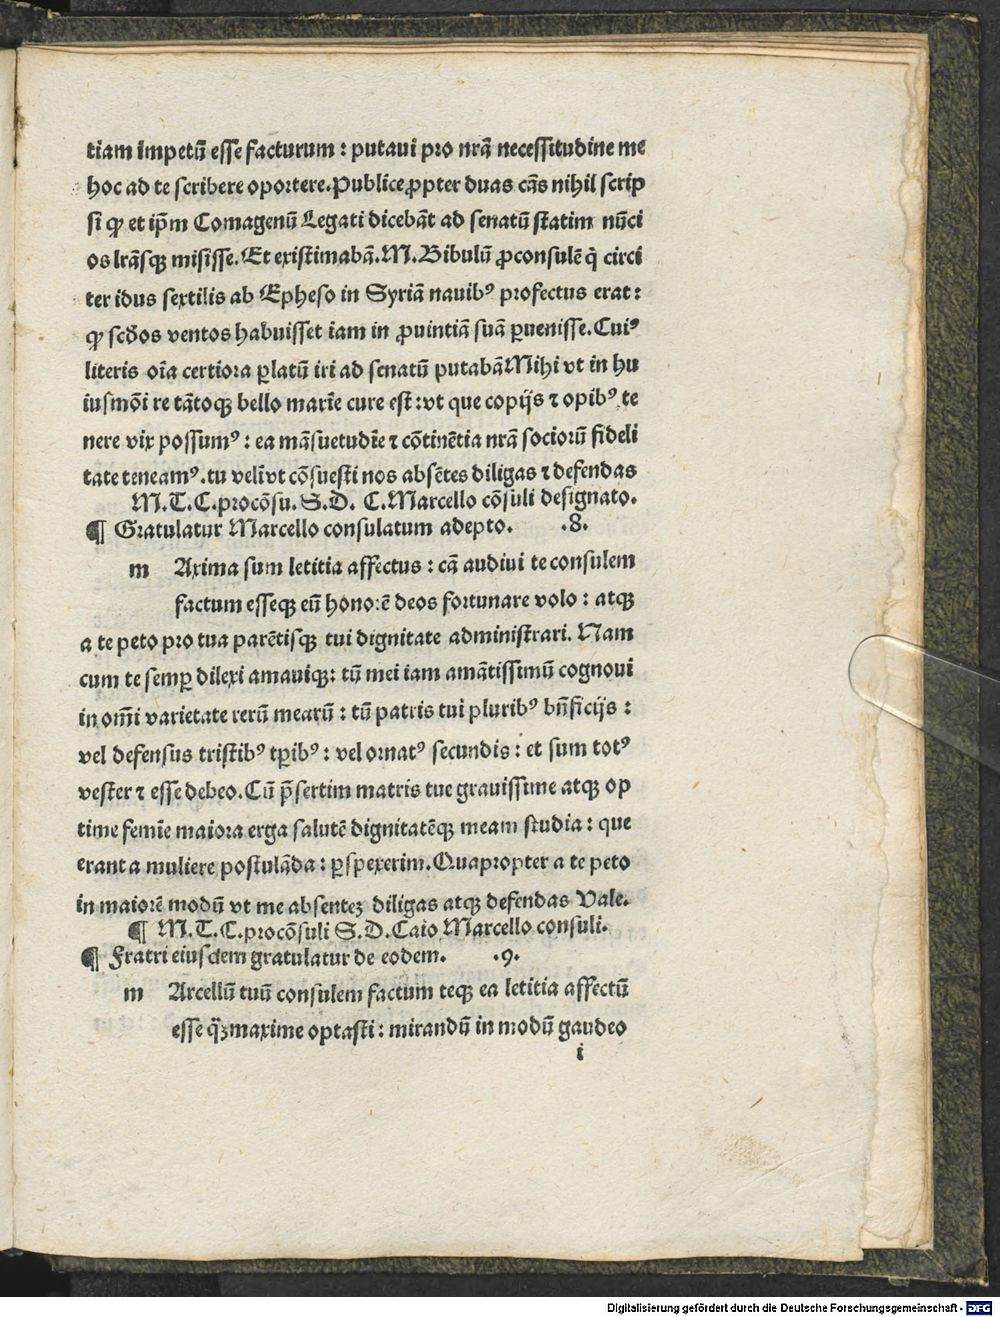 tiam impetū esse facturum : putaui pro nrā necessitudine me
hoc ad te scribere oportere. Publice ꝓpter duas cās nihil scrip
si ꝙ et ip̄m Comagenū Legati dicebāt ad senatū statim nūci
os lrāsqꝫ misisse. Et existimabā. M. Bibulū ꝓconsulē q̄ circi
ter idus sextilis ab Epheso in Syriā nauibꝰ profectus erat :
ꝙ scd̄os ventos habuisset iam in ꝓuintiā suā ꝑuenisse. Cuiꝰ
literis oīa certiora ꝑlatū iri ad senatū putabā Mihi vt in hu
iusmōi re tātoqꝫ bello marīe cure est : vt que copijs ⁊ opibꝰ te
nere vix possumꝰ : ea māsuetudīe ⁊ cōtinētia nrā sociorū fideli
tate teneamꝰ. tu velī vt cōsuesti nos absētes diligas ⁊ defendas
M. T. C. procōsu. S. D. C. Marcello cōsuli designato.
¶ Gratulatur Marcello consulatum adepto. .8.
m Axima sum letitia affectus : cā audiui te consulem
factum esseqꝫ eū honorē deos fortunare volo : atqꝫ
a te peto pro tua parētisqꝫ tui dignitate administrari. Nam
cum te semꝑ dilexi amauiqꝫ : tū mei iam amātissimū cognoui
in om̄i varietate rerū mearū : tū patris tui pluribꝰ bn̄ficijs :
vel defensus tristibꝰ tꝑibꝰ : vel ornatꝰ secundis : et sum totꝰ
vester ⁊ esse debeo. Cū p̄sertim matris tue grauissime atqꝫ op
time femīe maiora erga salutē dignitatēqꝫ meam studia : que
erant a muliere postulāda : ꝑspexerim. Quapropter a te peto
in maiorē modū vt me absenteꝫ diligas atqꝫ defendas Vale.
¶ M. T. C. procōsuli S. D. Caio Marcello consuli.
¶ Fratri eiusdem gratulatur de eodem. .9.
m Arcellū tuū consulem factum teqꝫ ea letitia affectū
esse qꝫ̄ maxime optasti : mirandū in modū gaudeo
i
Digitalisierung gefördert durch die Deutsche Forschungsgemeinschaft - DFG